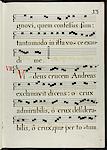 53
gnovi, quem contestus sum :
tantummodo in illa vo= cor=
di me
VIII. Videns crucem Andreas
exclamavit dicens : o crux
admirabilis, ô crux desidera=
bilis, ô crux, quæ per totum